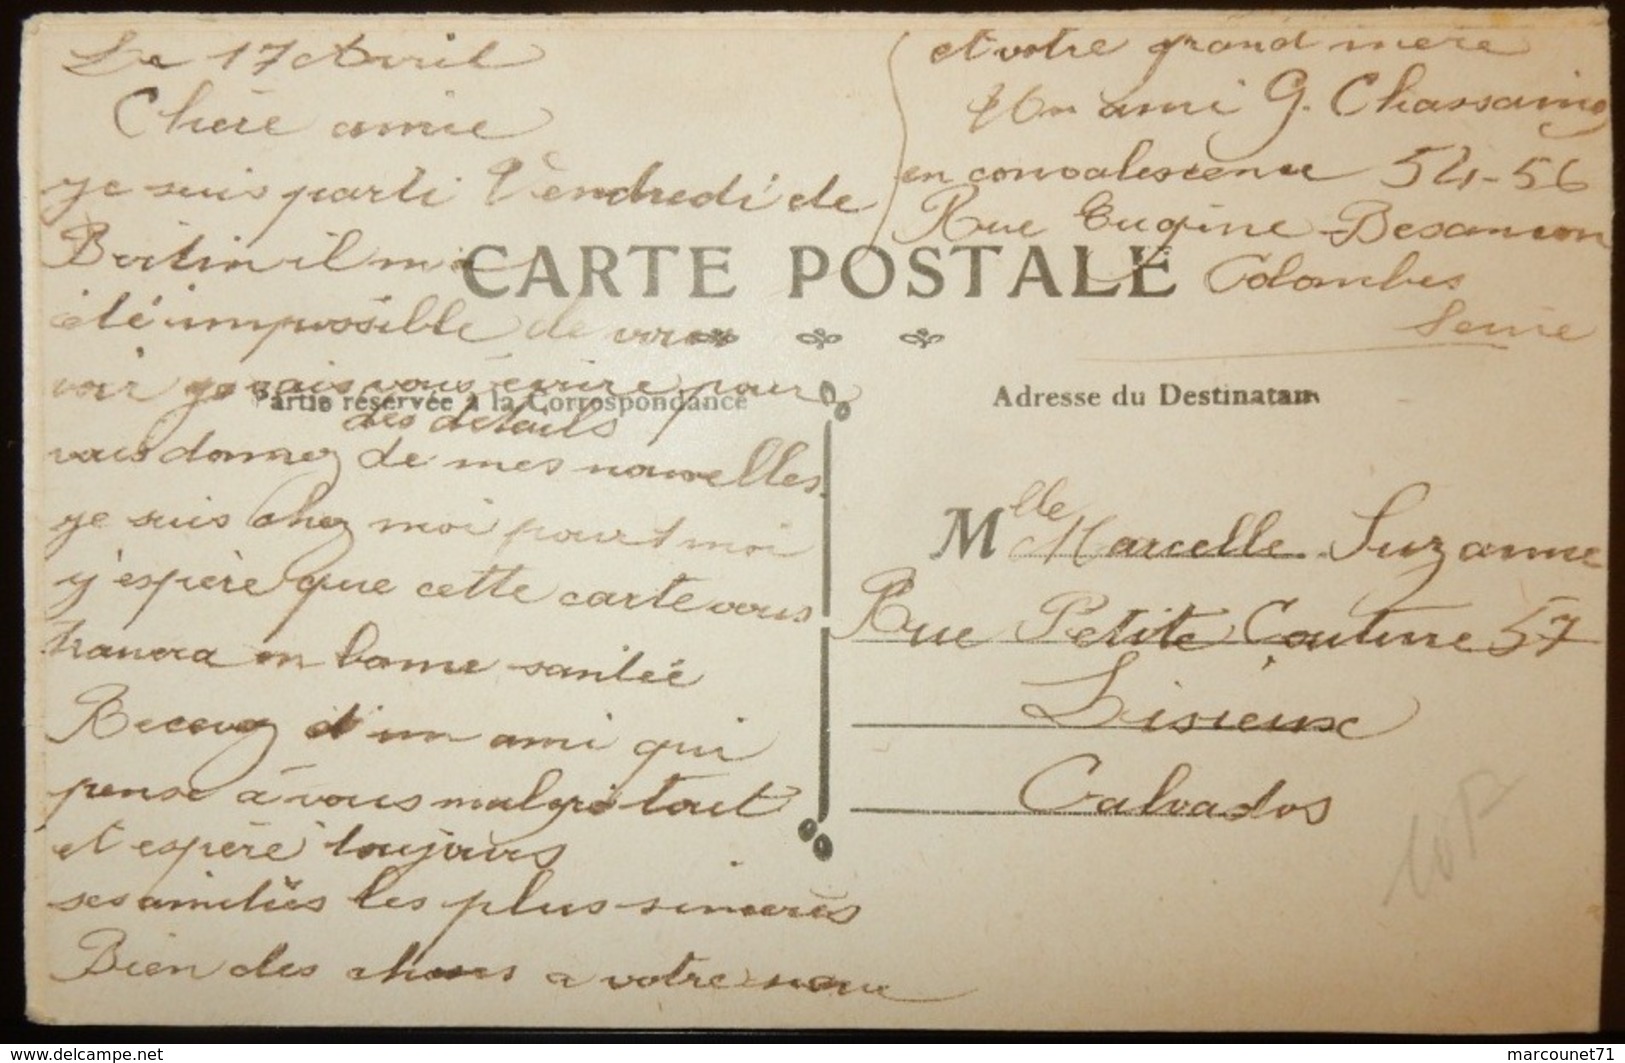 Le 17 Avril
Chère amie
je suis parti Vendredi de
il m'a
été impossible de vous
voir je vais vous écrire pour
des details
vous donnez de mes nouvelles
je suis chez moi pour 1 moi
j'espère que cette carte vous
trouvera en bonne santée
Recevez d'un ami qui
pense à vous malgré tout
et espère toujours
ses amitiés les plus sincères
Bien des choses a votre mère
et votre grand mère
Un ami G. Chassaing
en convalescence 54-56
Rue Eugène Besançon
Colombes
Seine
CARTE POSTALE
Partie réservée à la Correspondance
Adresse du Destinataire
Mlle Marcelle Suzanne
Rue Petite Couture 57
Lisieux
Calvados
www.delcampe.net
marcounet71